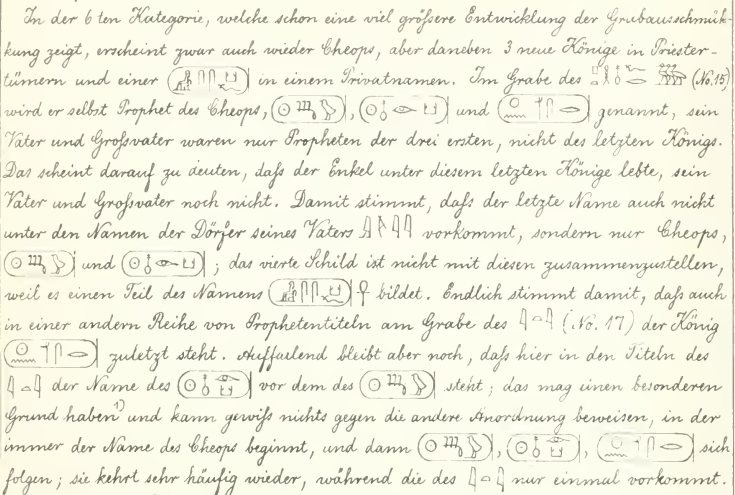 In der 6 ten Kategorie, welche schon eine viel größere Entwicklung der Grabausschmük-
kung zeigt, erscheint zwar auch wieder Cheops, aber daneben 3 neue Könige in Priester-
tümern und einer in einem Privatnamen. Im Grabe des (No. 15)
wird er selbst Prophet des Cheops, , und genannt, sein
Vater und Großvater waren nur Propheten der drei ersten, nicht des letzten Königs.
Das scheint darauf zu deuten, daß der Enkel unter diesem letzten Könige lebte, sein
Vater und Großvater noch nicht. Damit stimmt, daß der letzte Name auch nicht
unter den Namen der Dörfer seines Vaters vorkommt, sondern nur Cheops,
und ; das vierte Schild ist nicht mit diesen zusammenzustellen,
weil es einen Teil des Namens bildet. Endlich stimmt damit, daß auch
in einer andern Reihe von Prophetentiteln am Grabe des (No. 17) der König
zuletzt steht. Auffallend bleibt aber noch, daß hier in den Titeln des
der Name des vor dem des steht; das mag einen besonderen
Grund haben 1) und kann gewiß nichts gegen die andere Anordnung beweisen, in der
immer der Name des Cheops beginnt, und dann , , sich
folgen; sie kehrt sehr häufig wieder, während die des nur einmal vorkommt.